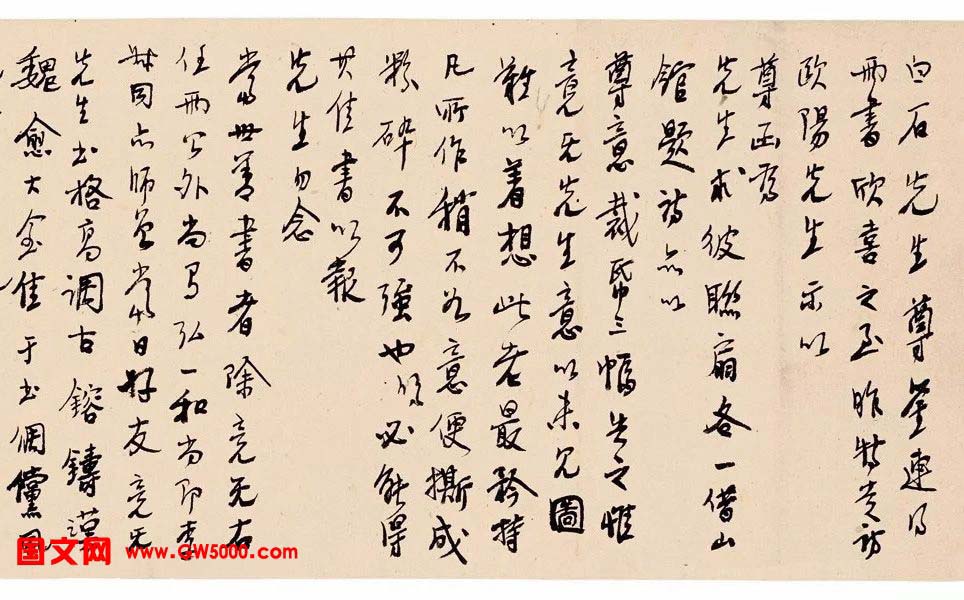 白石先生尊鉴连得
两书欣喜之至昨特走访
欧阳先生示以
尊函为
先生求彼联扇各一借山
馆题诗亦以
尊意裁纸三幅告之惟
竟无先生意以未见图
难以着想此老最矜持
凡所作稍不如意便撕成
粉碎不可强也然必能得
其佳书以报
先生勿念
当世善书者除竟无右
任两公外尚有弘一和尚即李
叔同亦师曾当日好友竟无
先生书格高调古镕铸汉
魏愈大愈佳于书倜傥
图文网 www.GW5000.com